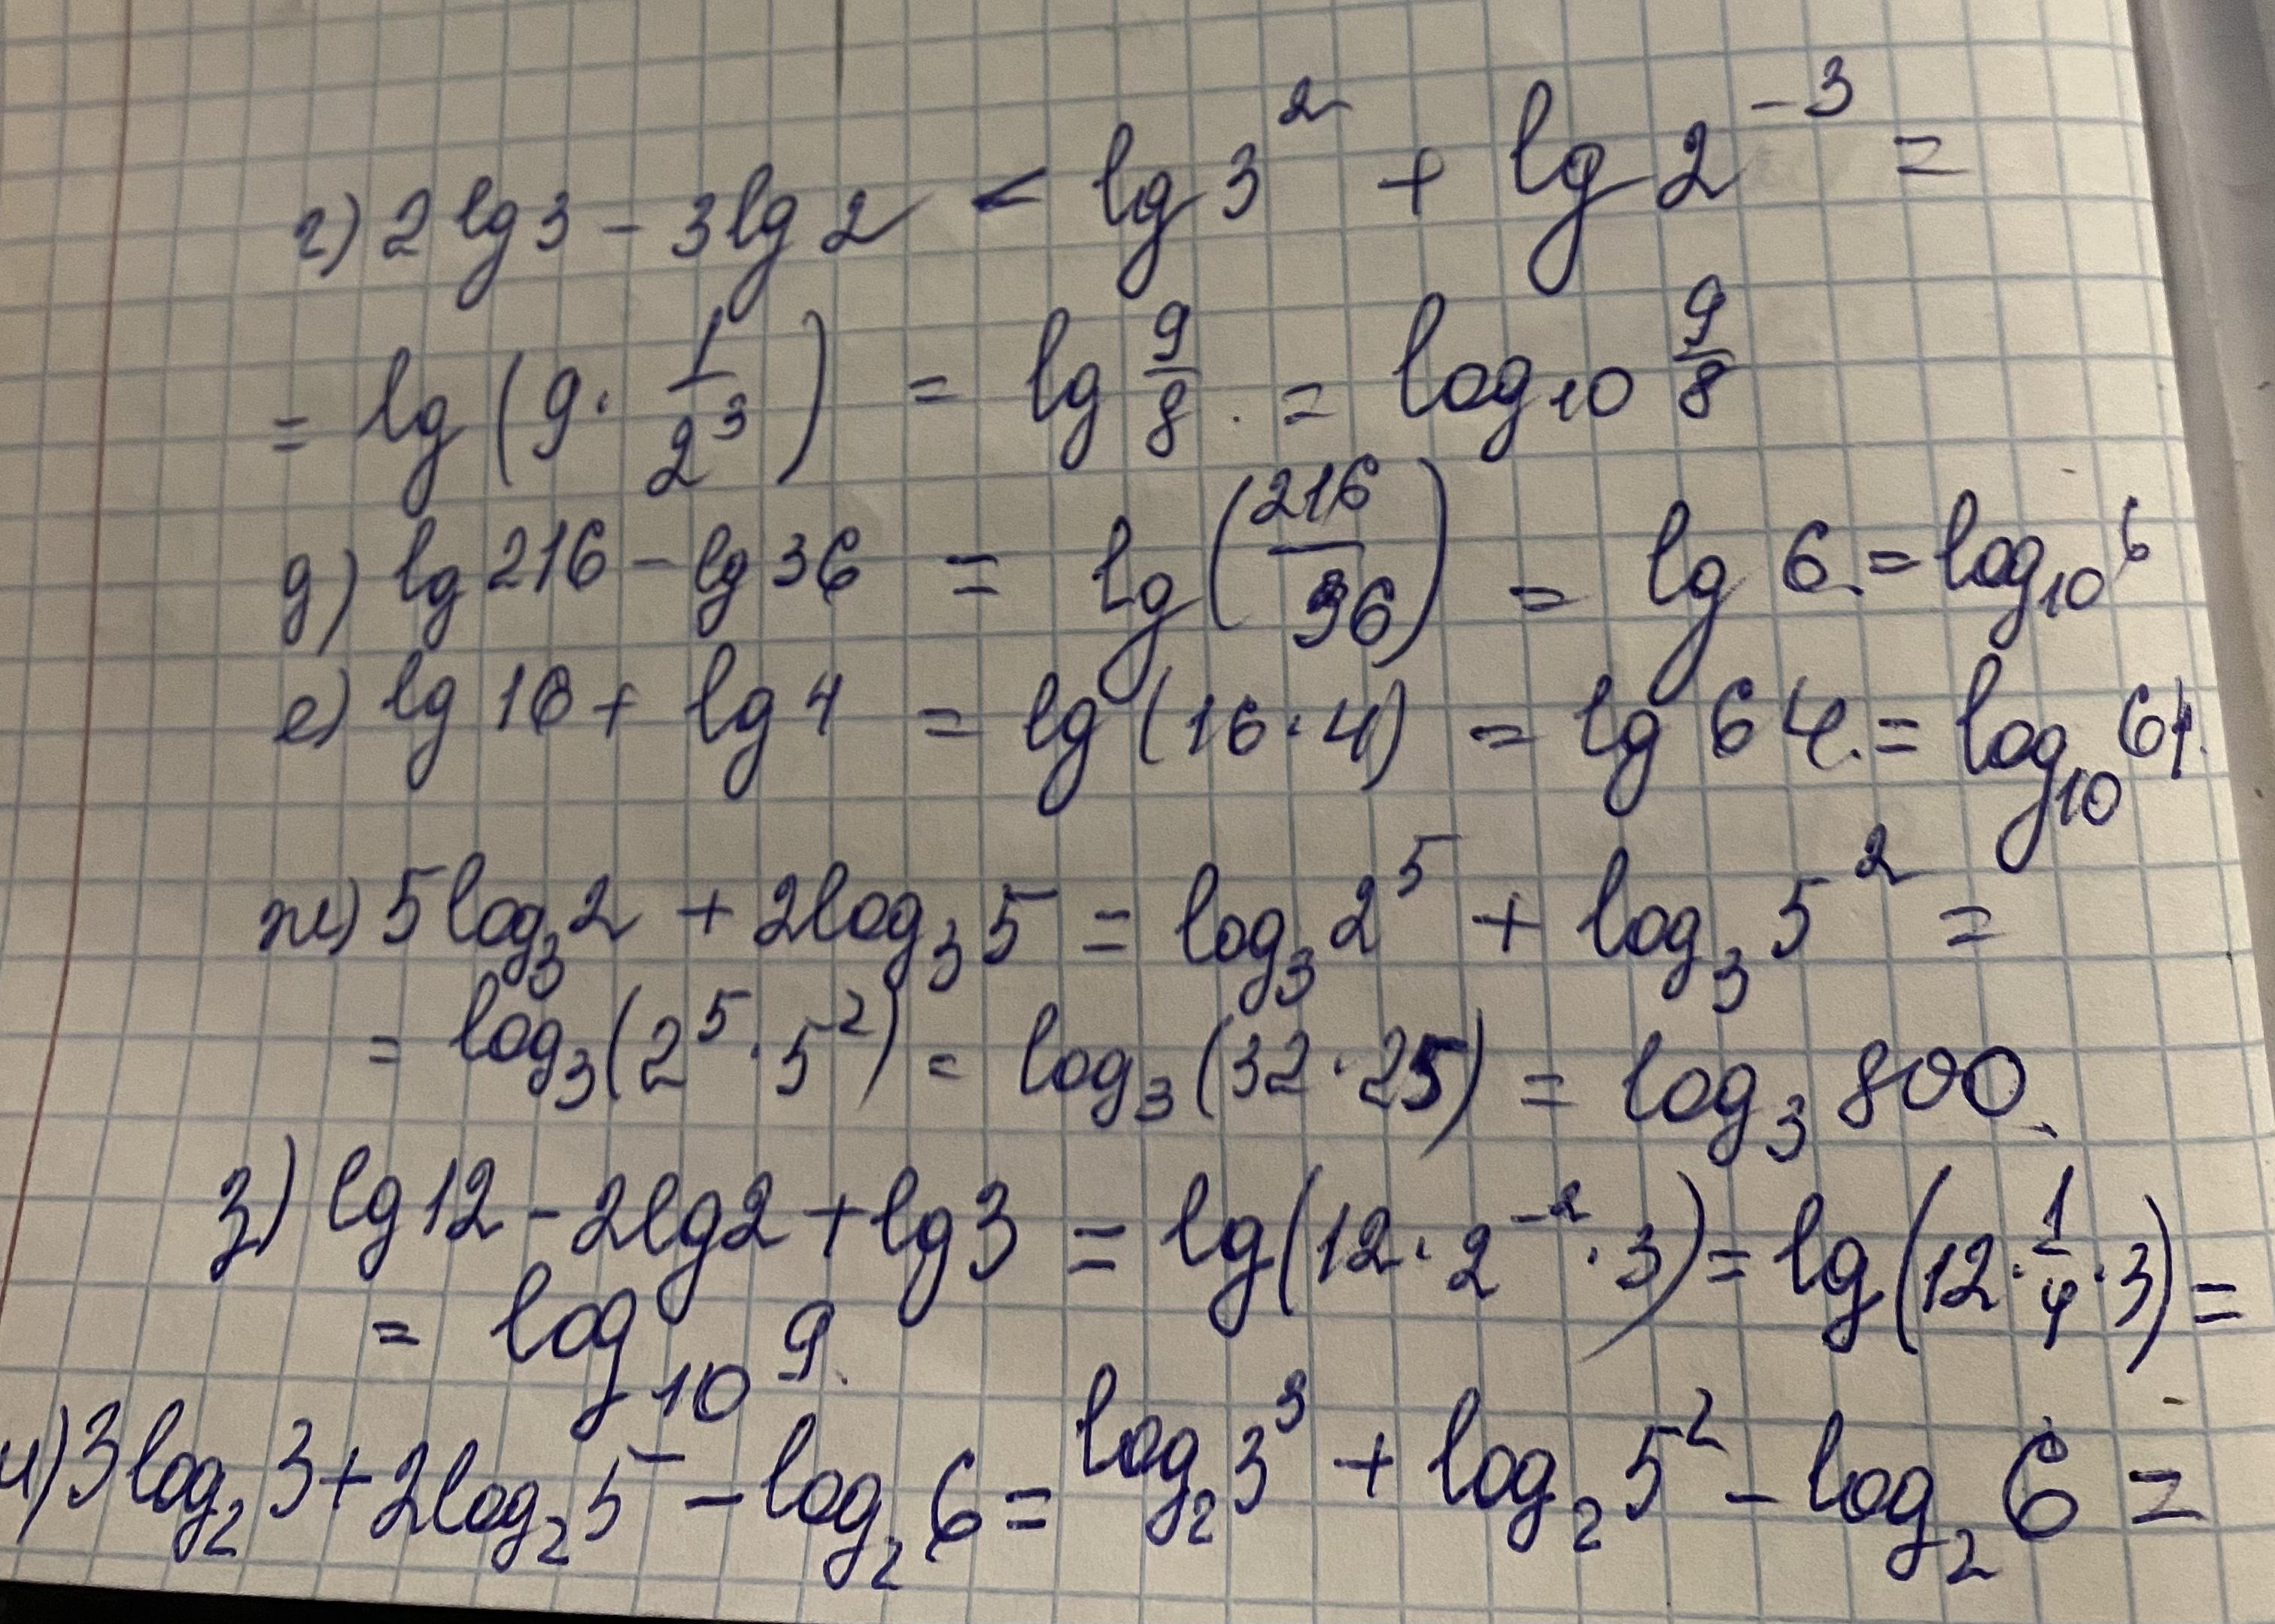 г) 2 lg 3 - 3 lg 2 = lg 3² + lg 2⁻³ =
= lg (9 · 1/2³) = lg 9/8 . = log₁₀ 9/8
д) lg 216 - lg 36 = lg (216/36) = lg 6. = log₁₀ 6
е) lg 16 + lg 4 = lg (16 · 4) = lg 64. = log₁₀ 64.
ж) 5 log₃ 2 + 2 log₃ 5 = log₃ 2⁵ + log₃ 5² =
= log₃ (2⁵ · 5²) = log₃ (32 · 25) = log₃ 800.
з) lg 12 - 2 lg 2 + lg 3 = lg (12 · 2⁻² · 3) = lg (12 · 1/4 · 3) =
= log₁₀ 9.
и) 3 log₂ 3 + 2 log₂ 5 - log₂ 6 = log₂ 3³ + log₂ 5² - log₂ 6 =